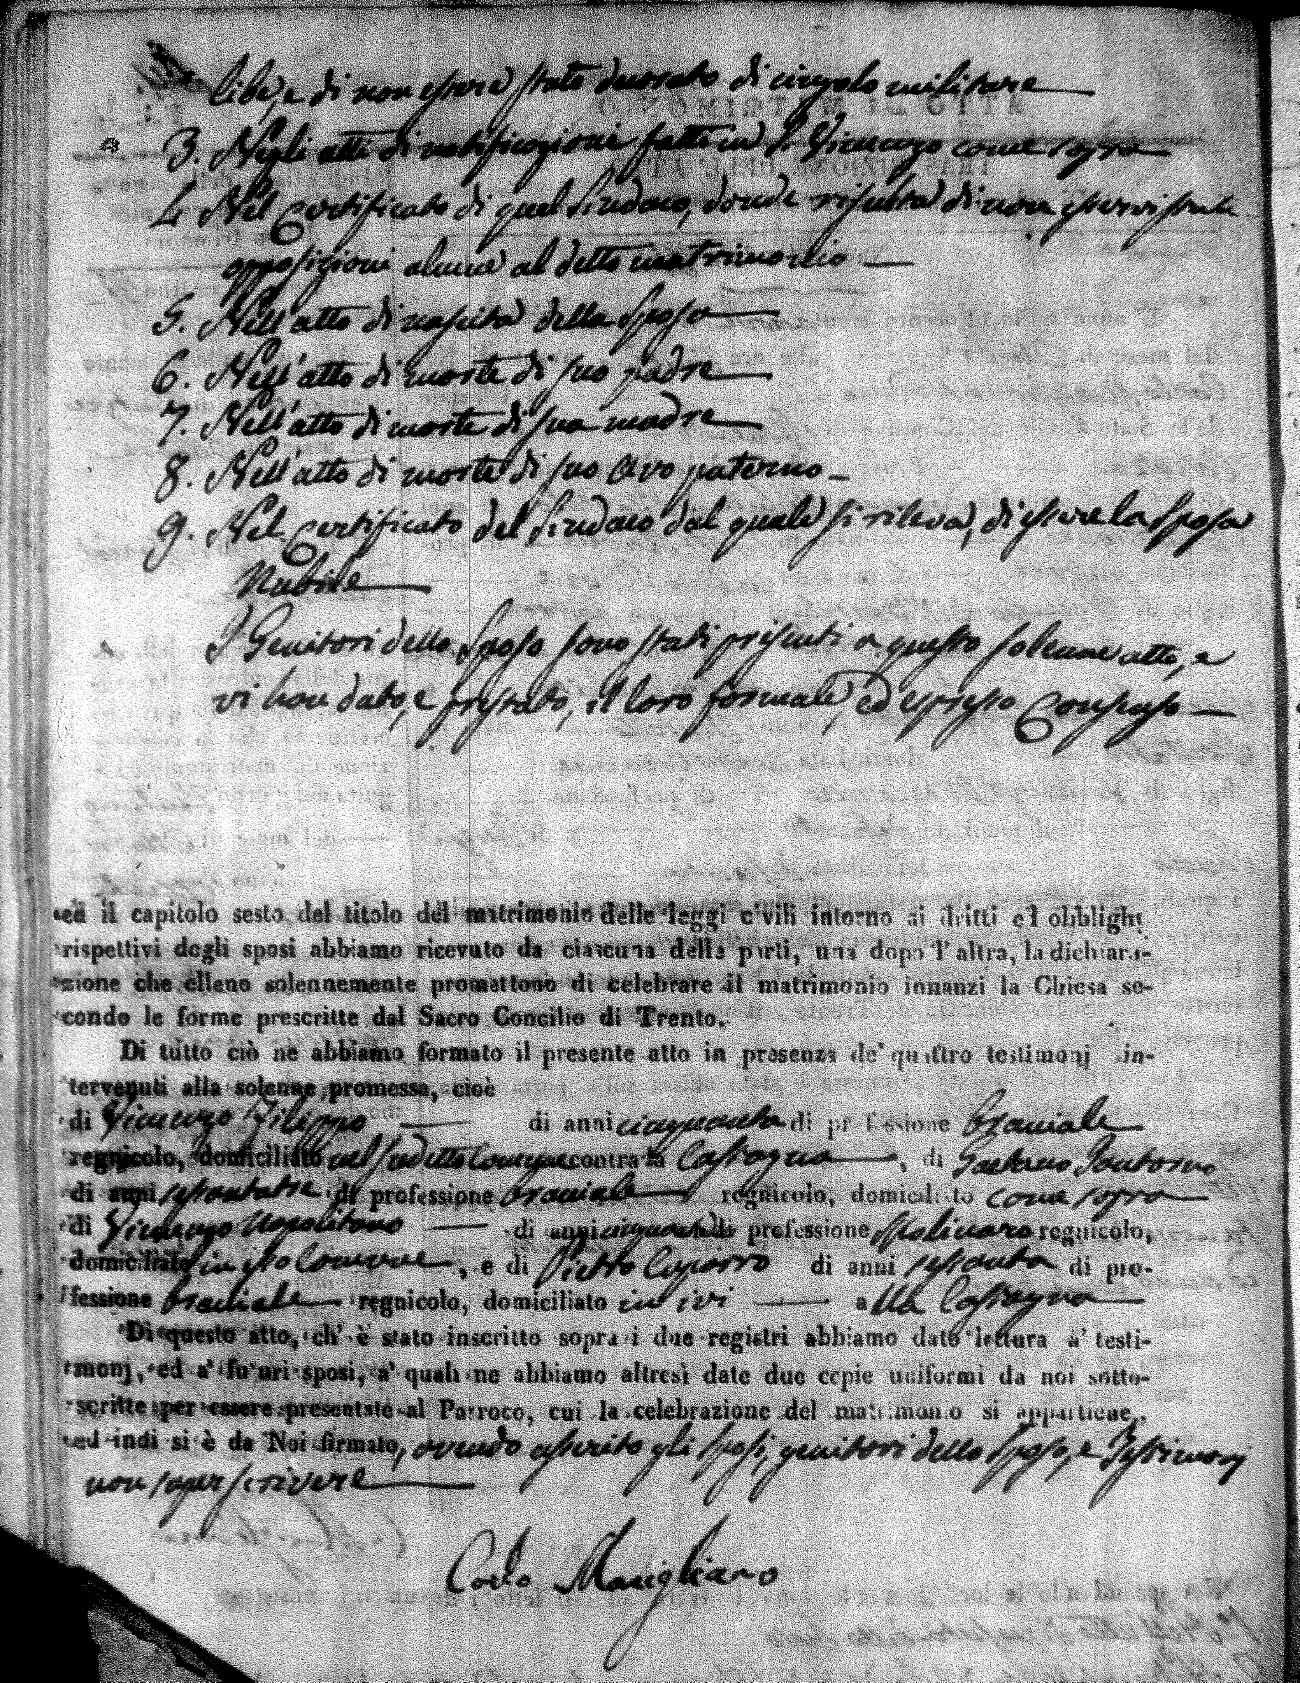 libe, e di non essere stato marcato di cingolo militare
3. Negli atti di notificazione fatti in S. Vincenzo come sopra
4. Nel Certificato di quel Sindaco, donde risulta di non esservi state
opposizioni alcune al detto matrimonio
5. Nell'atto di nascita della Sposa
6. Nell'atto di morte di suo padre
7. Nell'atto di morte di sua madre
8. Nell'atto di morte di suo avo paterno
9. Nel Certificato del Sindaco dal quale si rileva, di essere la Sposa
Nubile
I Genitori dello Sposo sono stati presenti a questo solenne atto, e
vi han dato, e prestato, il loro formale, ed espresso Consenso
ed il capitolo sesto del titolo del matrimonio delle leggi civili intorno ai dritti ed obblighi
rispettivi degli sposi abbiamo ricevuto da ciascuna delle parti, una dopo l'altra, la dichiara-
zione che elleno solennemente promettono di celebrare il matrimonio innanzi la Chiesa se-
condo le forme prescritte dal Sacro Concilio di Trento.
Di tutto ciò ne abbiamo formato il presente atto in presenza de' quattro testimonj in-
tervenuti alla solenne promessa, cioè
di Vincenzo Filippo di anni cinquanta di professione braciale
regnicolo, domiciliato nel sudetto Comune contrada Castagna, di Gaetano
di anni sessantatre di professione braciale regnicolo, domiciliato come sopra
di Vincenzo Napolitano di anni cinquanta di professione regnicolo,
domiciliato in sto Comune, e di Pietro di anni sessanta di pro-
fessione braciale regnicolo, domiciliato in ivi alla Castagna
Di questo atto, ch' è stato inscritto sopra i due registri abbiamo dato lettura a' testi-
monj, ed a' futuri sposi, a' quali ne abbiamo altresì date due copie uniformi da noi sotto-
scritte per essere presentate al Parroco, cui la celebrazione del matrimonio si appartiene,
ed indi si è da Noi firmato, avendo asserito gli Sposi, genitori dello Sposo, e Testimonj
non saper scrivere
Carlo Marigliano